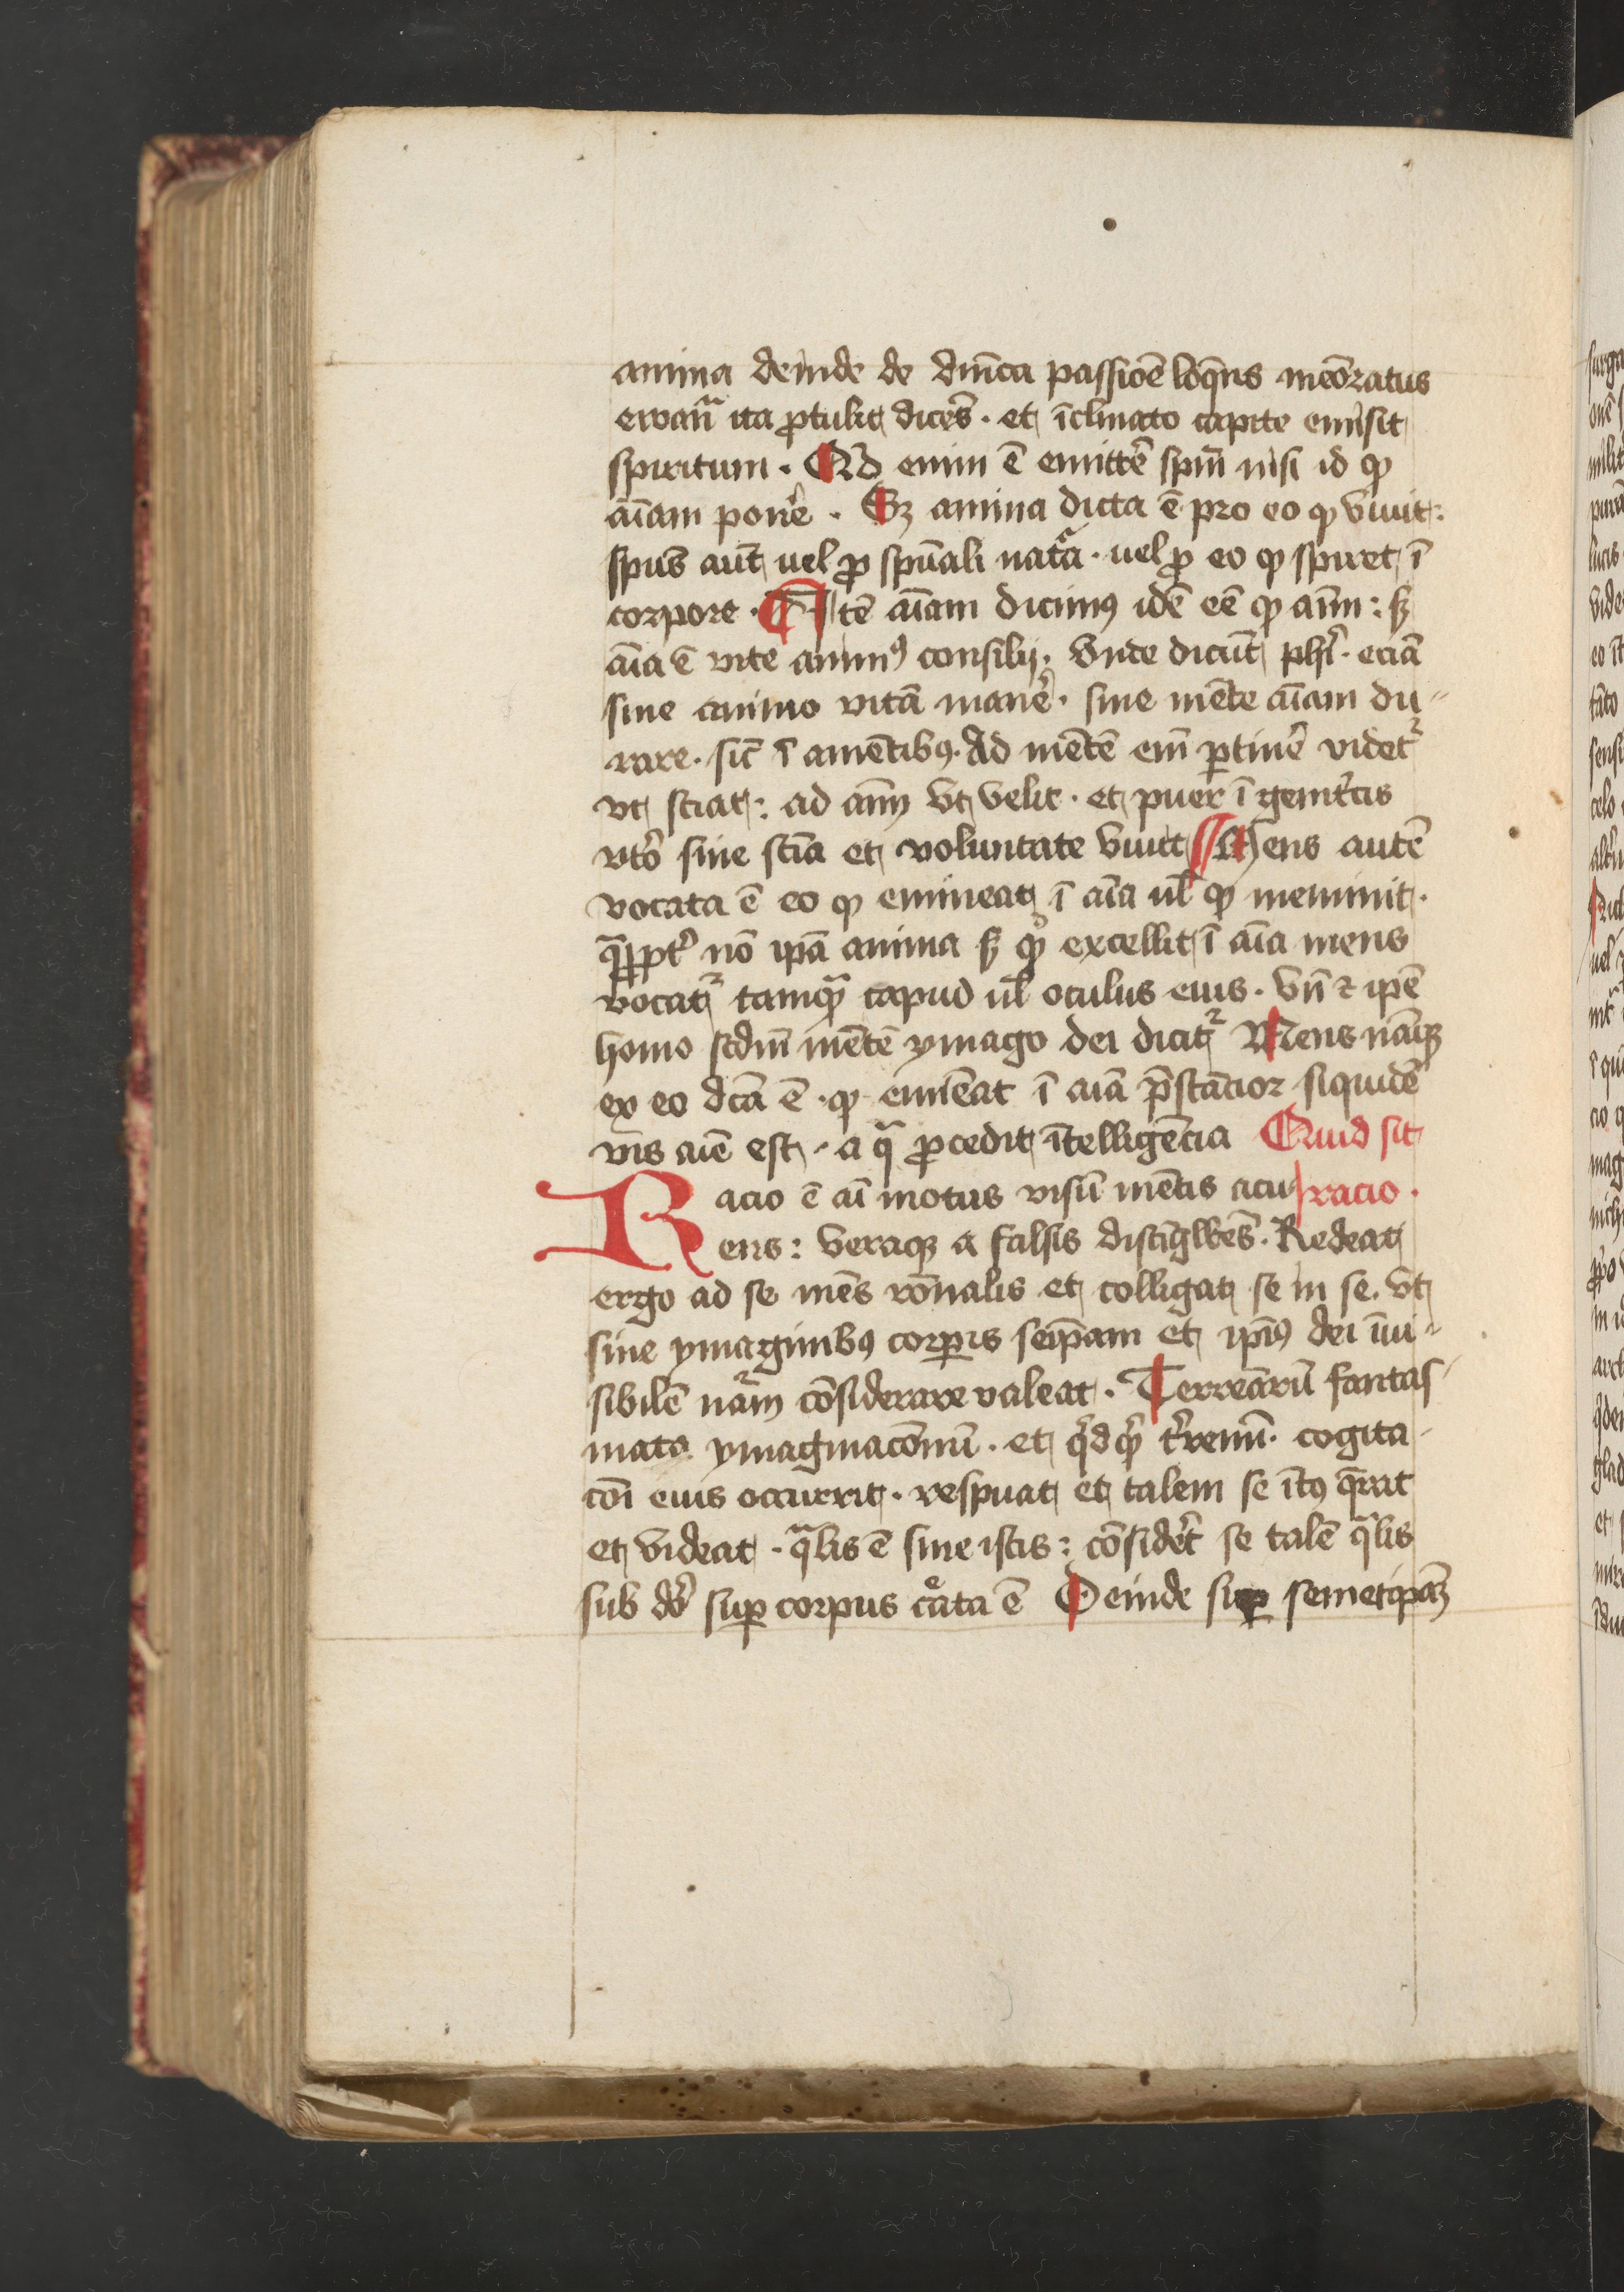 anima deinde de dn̄ica passiōe loq̄ns meōratus
ewan̄ ita ꝓtulit dicēs · et īclinato capite emisit
spiritum · Qd enim ē emittē sp̄m nisi id ꝙ
aīam ponē · Sꝫ anima dicta ē pro eo ꝙ viuit :
sp̄us aūt uel ꝓ sp̄uali natᷓa · uel ꝓ eo ꝙ spiret ī
corpore · Itē aīam dicimꝰ idē eē ꝙ aīm : sꝫ
aīa ē vite animꝰ consilij · Vnde dicūt ph̄i · eciā
sine animo vitā manē · sine mēte aīam du-
rare · sic̄ ī amētibꝰ · Ad mētē em̄ ꝑtinē videtᷣ
vt sciat : ad aīm vt velit · et puer ī genit̄cis
vt̄o sine sciā et voluntate viuit Mens autē
vocata ē eo ꝙ emineat ī aīa ul̄ ꝙ meminit ·
qᷓꝓpt̄ nō ip̄a anima sꝫ qͦ excellit ī aīa mens
vocatᷣ tamqᷓ capud ul̄ oculus eius · Vn̄ ⁊ ip̄e
homo scdm̄ mētē ymago dei dicitᷣ Mens nāqꝫ
ex eo dcā ē · ꝙ emīeat ī aīa p̄stācior siquidē
vis aīe est · a qᷓ ꝓcedit ītelligēcia Quid sit
Racio ē aī motus visū mētis acu racio ·
ens : veraqꝫ a falsis distīgwēs · Redeat
ergo ad se mēs rōnalis et colligat se in se · vt
sine ymaginibꝰ corꝑis seip̄am et ip̄iꝰ dei īui-
sibilē nᷓam cōsiderare valeat · Terrearū fantas-
mata ymaginacōnū · et qͥdqͥ t̄renū · cogita-
cōi eius occurrit · respuat et talem se ītꝰ q̄rat
et videat · qᷓlis ē sine istis : cōsid̄et se talē qᷓlis
sub dō suꝑ corpus cͤata ē Deinde suꝑ semetip̄aꝫ